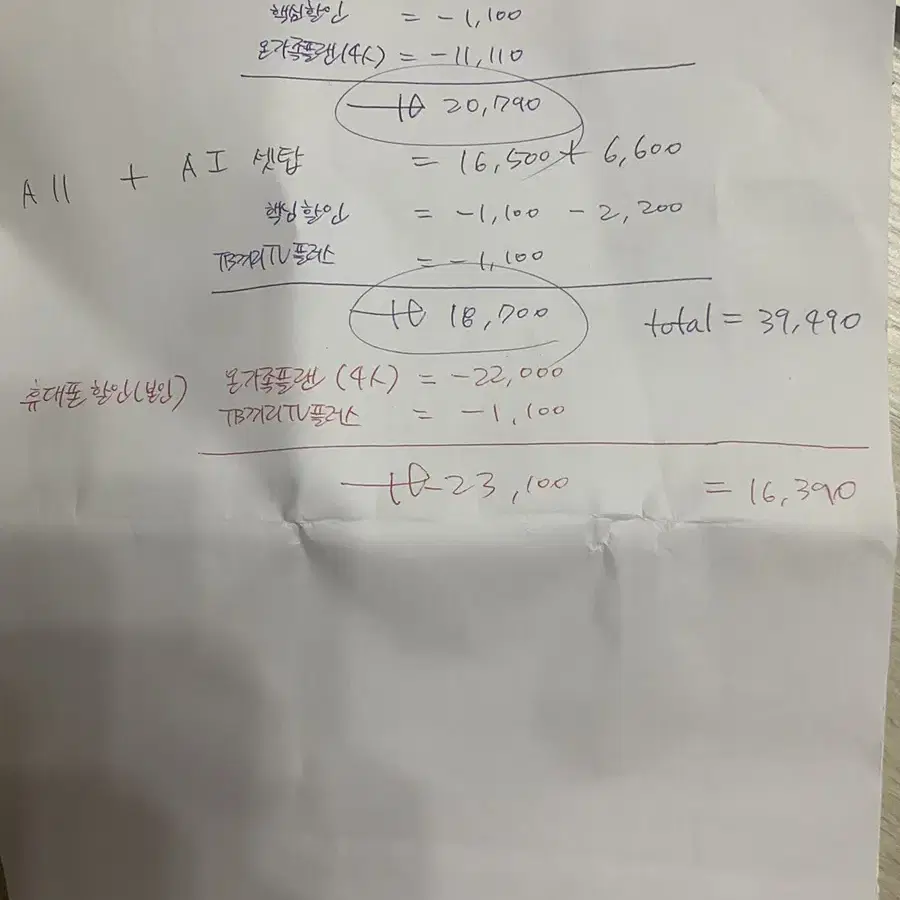 핵심할인 = -1,100
온가족플랜(4人) = -11,110
20,790
All + AI 셋탑 = 16,500 + 6,600
핵심할인 = -1,100 - 2,200
TB끼리TV플러스 = -1,100
18,700 total = 39,490
휴대폰 할인(본인) 온가족플랜 (4人) = -22,000
TB끼리TV플러스 = -1,100
-23,100 = 16,390